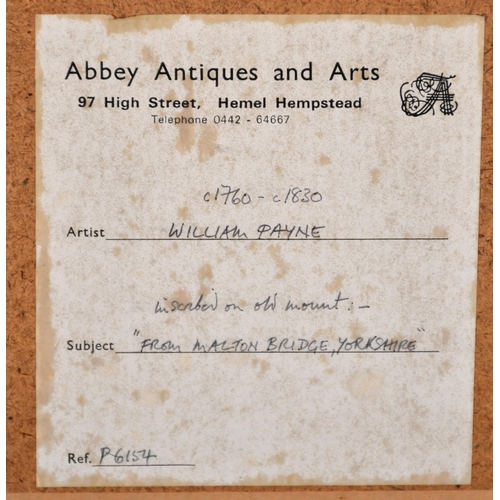 Abbey Antiques and Arts
97 High Street, Hemel Hempstead
Telephone 0442 - 64667
c1760 - c1830
Artist WILLIAM PAYNE
inscribed on old mount:-
Subject "FROM MALTON BRIDGE, YORKSHIRE"
Ref. P6154